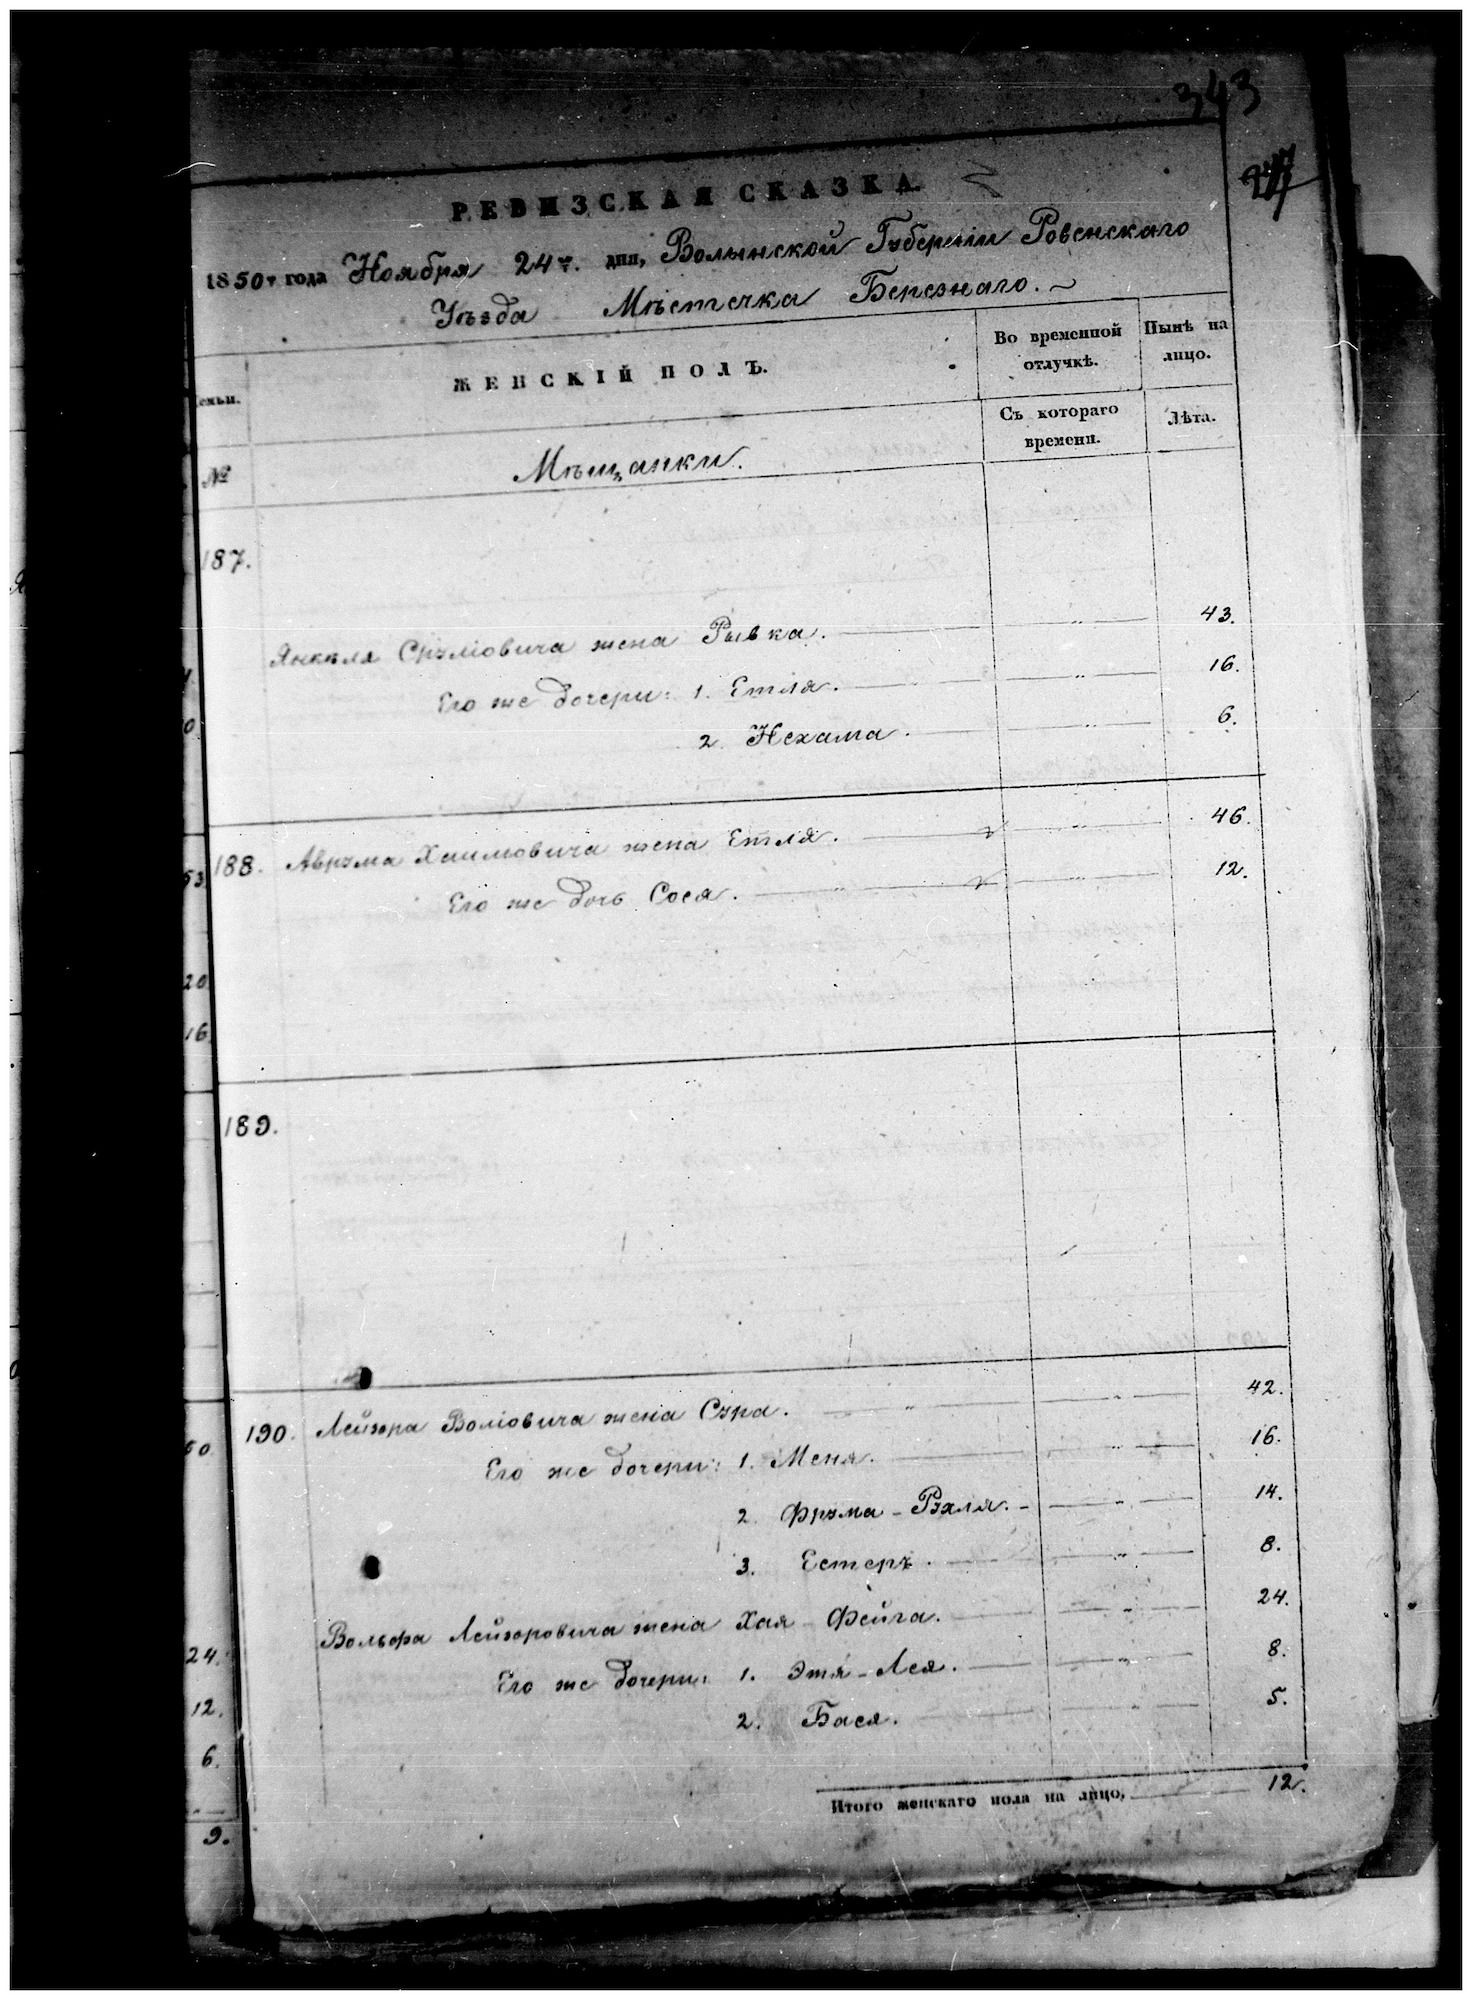 343
277
РЕВИЗСКАЯ СКАЗКА.
1850 г года Ноября 24 г. дня, Волынской Губерніи Ровенскаго
Уѣзда Мѣстечка Березнаго.
ЖЕНСКІЙ ПОЛЪ.
Во временной отлучкѣ.
Нынѣ на лицо.
емьи.
Съ котораго времени.
Лѣта.
№
Мѣщанки.
187.
Янкеля Срулiовича жена Рывка. " 43.
Его же дочери: 1. Етля. " 16.
2. Нехама. " 6.
188. Аврума Хаимовича жена Етля. " 46.
Его же дочь Сося. " 12.
189.
190. Лейзора Волiовича жена Сура. " 42.
Его же дочери: 1. Меня. " 16.
2. Фрума-Рэхля. " 14.
3. Естеръ. " 8.
Вольфа Лейзоровича жена Хая-Фейга. " 24.
Его же дочери: 1. Этя-Лея. " 8.
2. Бася. " 5.
Итого женскаго пола на лицо, 12.
53
20
16
50
24.
12.
6.
9.